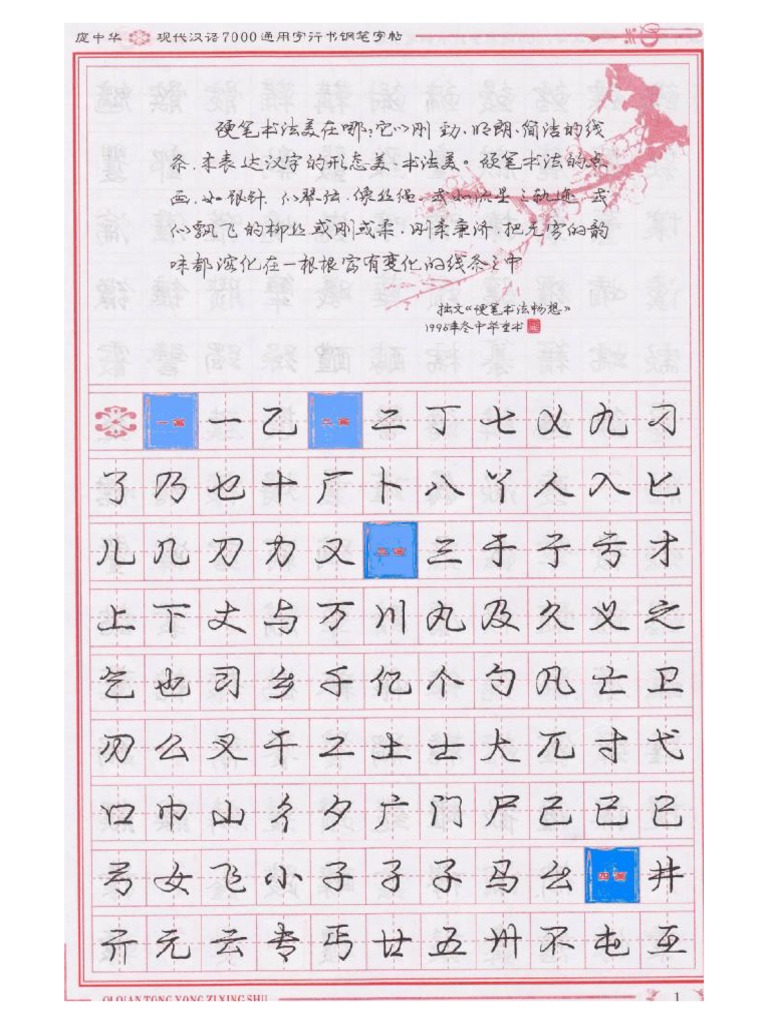 庞中华 现代汉语7000通用字行书钢笔字帖
硬笔书法美在哪?它以刚劲、明朗、简洁的线
条,来表达汉字的形态美、书法美。硬笔书法的点
画,如银针、似琴弦、像丝绳,或如流星之轨迹,或
似飘飞的柳丝,或刚或柔,刚柔兼济,把无穷的韵
味都深化在一根根富有变化的线条之中
拙文《硬笔书法畅想》
1996年冬中华並书
一画 一 乙 二画 二 丁 七 乂 九 刁
了 乃 乜 十 厂 卜 八 丫 人 入 匕
儿 几 刀 力 又 三画 三 于 亍 亏 才
上 下 丈 与 万 川 丸 及 久 义 之
乞 也 习 乡 千 亿 个 勺 凡 亡 卫
刃 么 叉 干 工 土 士 大 兀 寸 弋
口 巾 山 彳 夕 广 门 尸 己 已 巳
弓 女 飞 小 子 孑 孓 马 幺 四画 井
亓 元 云 专 丐 廿 五 卅 不 屯 互
QI QIAN TONG YONG ZI XING SHU
1